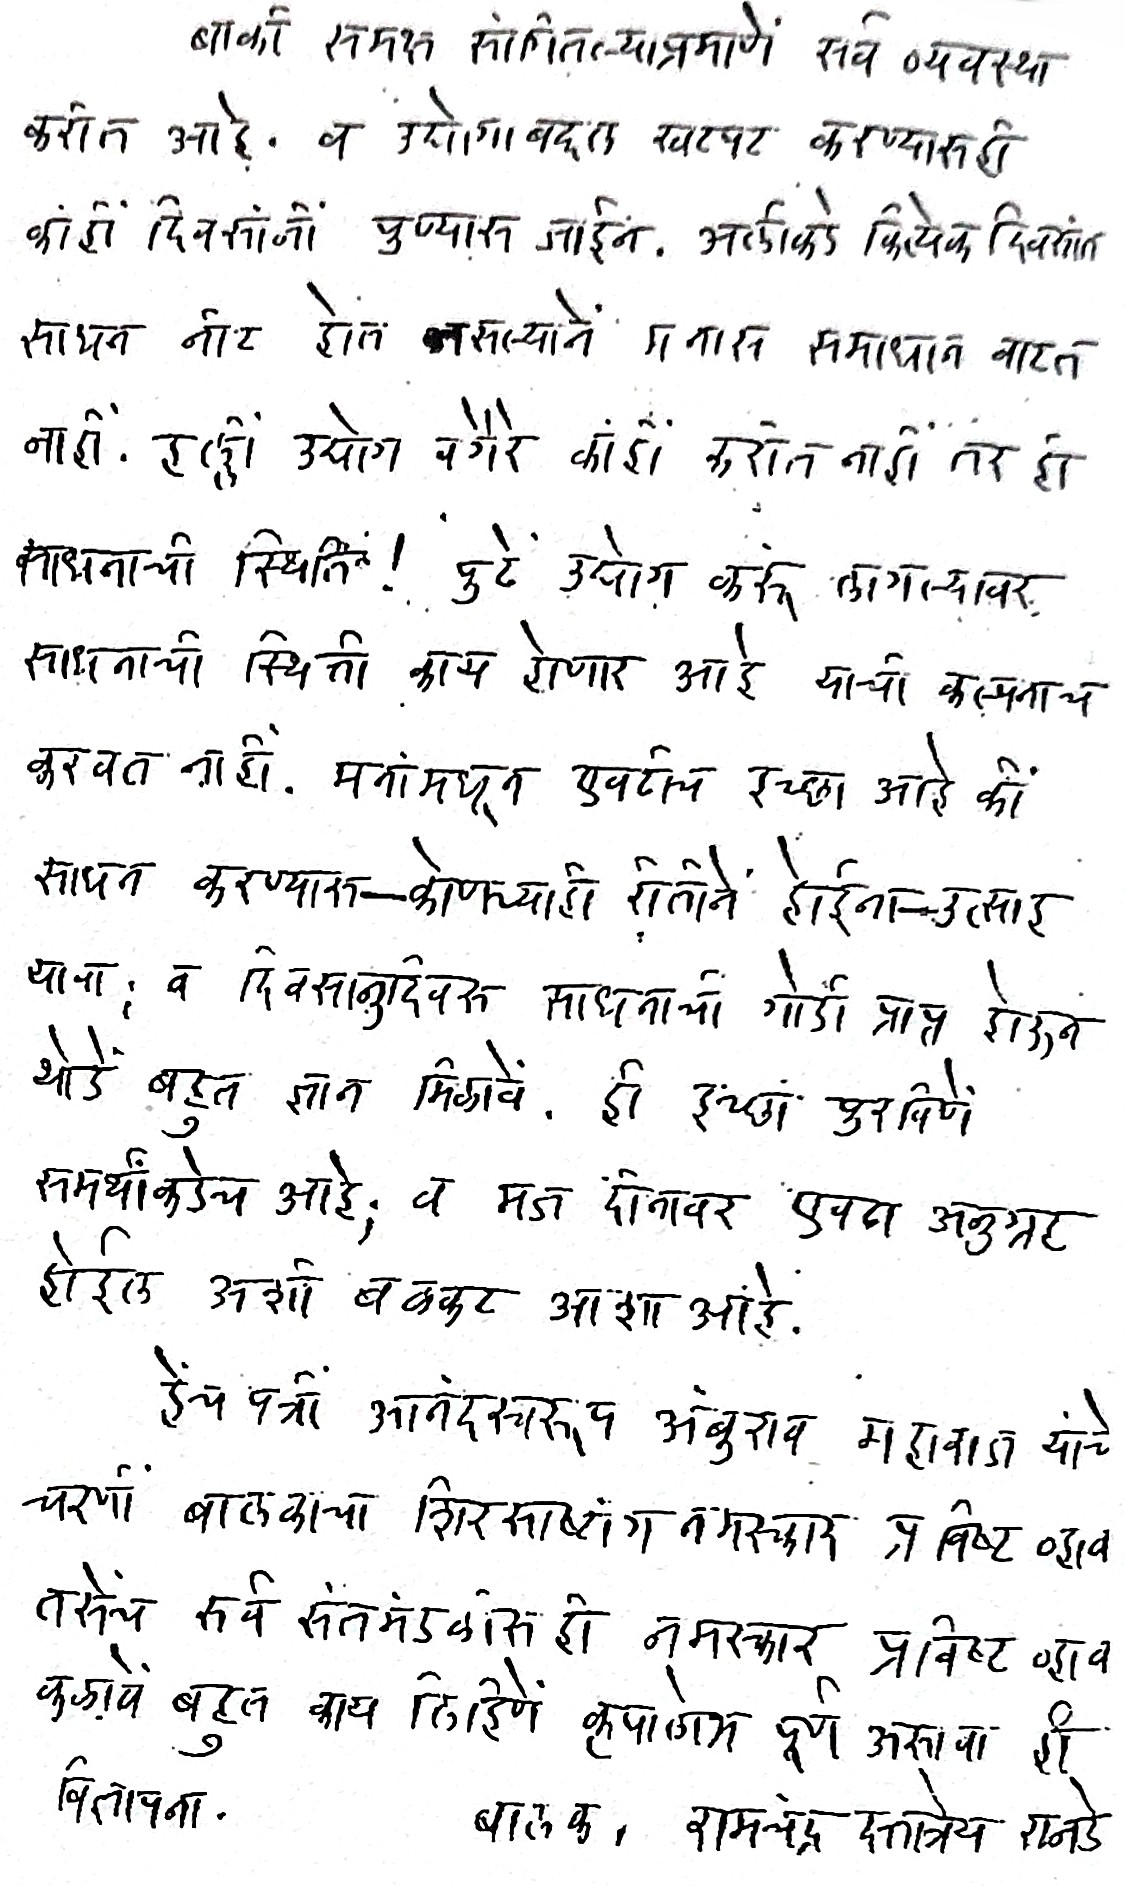 बाकी समक्ष सांगितल्याप्रमाणें सर्व व्यवस्था
करीत आहे. व उद्योगाबद्दल खटपट करण्यासही
कांहीं दिवसांनीं पुण्यास जाईन. अलीकडे कित्येक दिवसांत
साधन नीट होत नसल्यानें मनास समाधान वाटत
नाहीं. हल्लीं उद्योग वगैरे कांहीं करीत नाहीं तर ही
साधनाची स्थिति! पुढें उद्योग करूं लागल्यावर
साधनाची स्थिती काय होणार आहे याची कल्पनाच
करवत नाहीं. मनांमधून एवढीच इच्छा आहे कीं
साधन करण्यास—कोणत्याही रीतीनें होईना—उत्साह
यावा; व दिवसानुदिवस साधनाची गोडी प्राप्त होऊन
थोडें बहुत ज्ञान मिळावें. ही इच्छा पुरविणें
समर्थांकडेच आहे; व मज दीनावर एवढा अनुग्रह
होईल अशी बळकट आशा आहे.
हेंच पत्रीं आनंदस्वरूप अंबुराव महाराज यांचे
चरणीं बालकाचा शिरसाष्टांग नमस्कार प्रविष्ट व्हावा
तसेंच सर्व संतमंडळीसही नमस्कार प्रविष्ट व्हावा
कळावें बहुत काय लिहिणें कृपालोभ पूर्ण असावा ही
विज्ञापना. बालक, रामचंद्र दत्तात्रेय रानडे